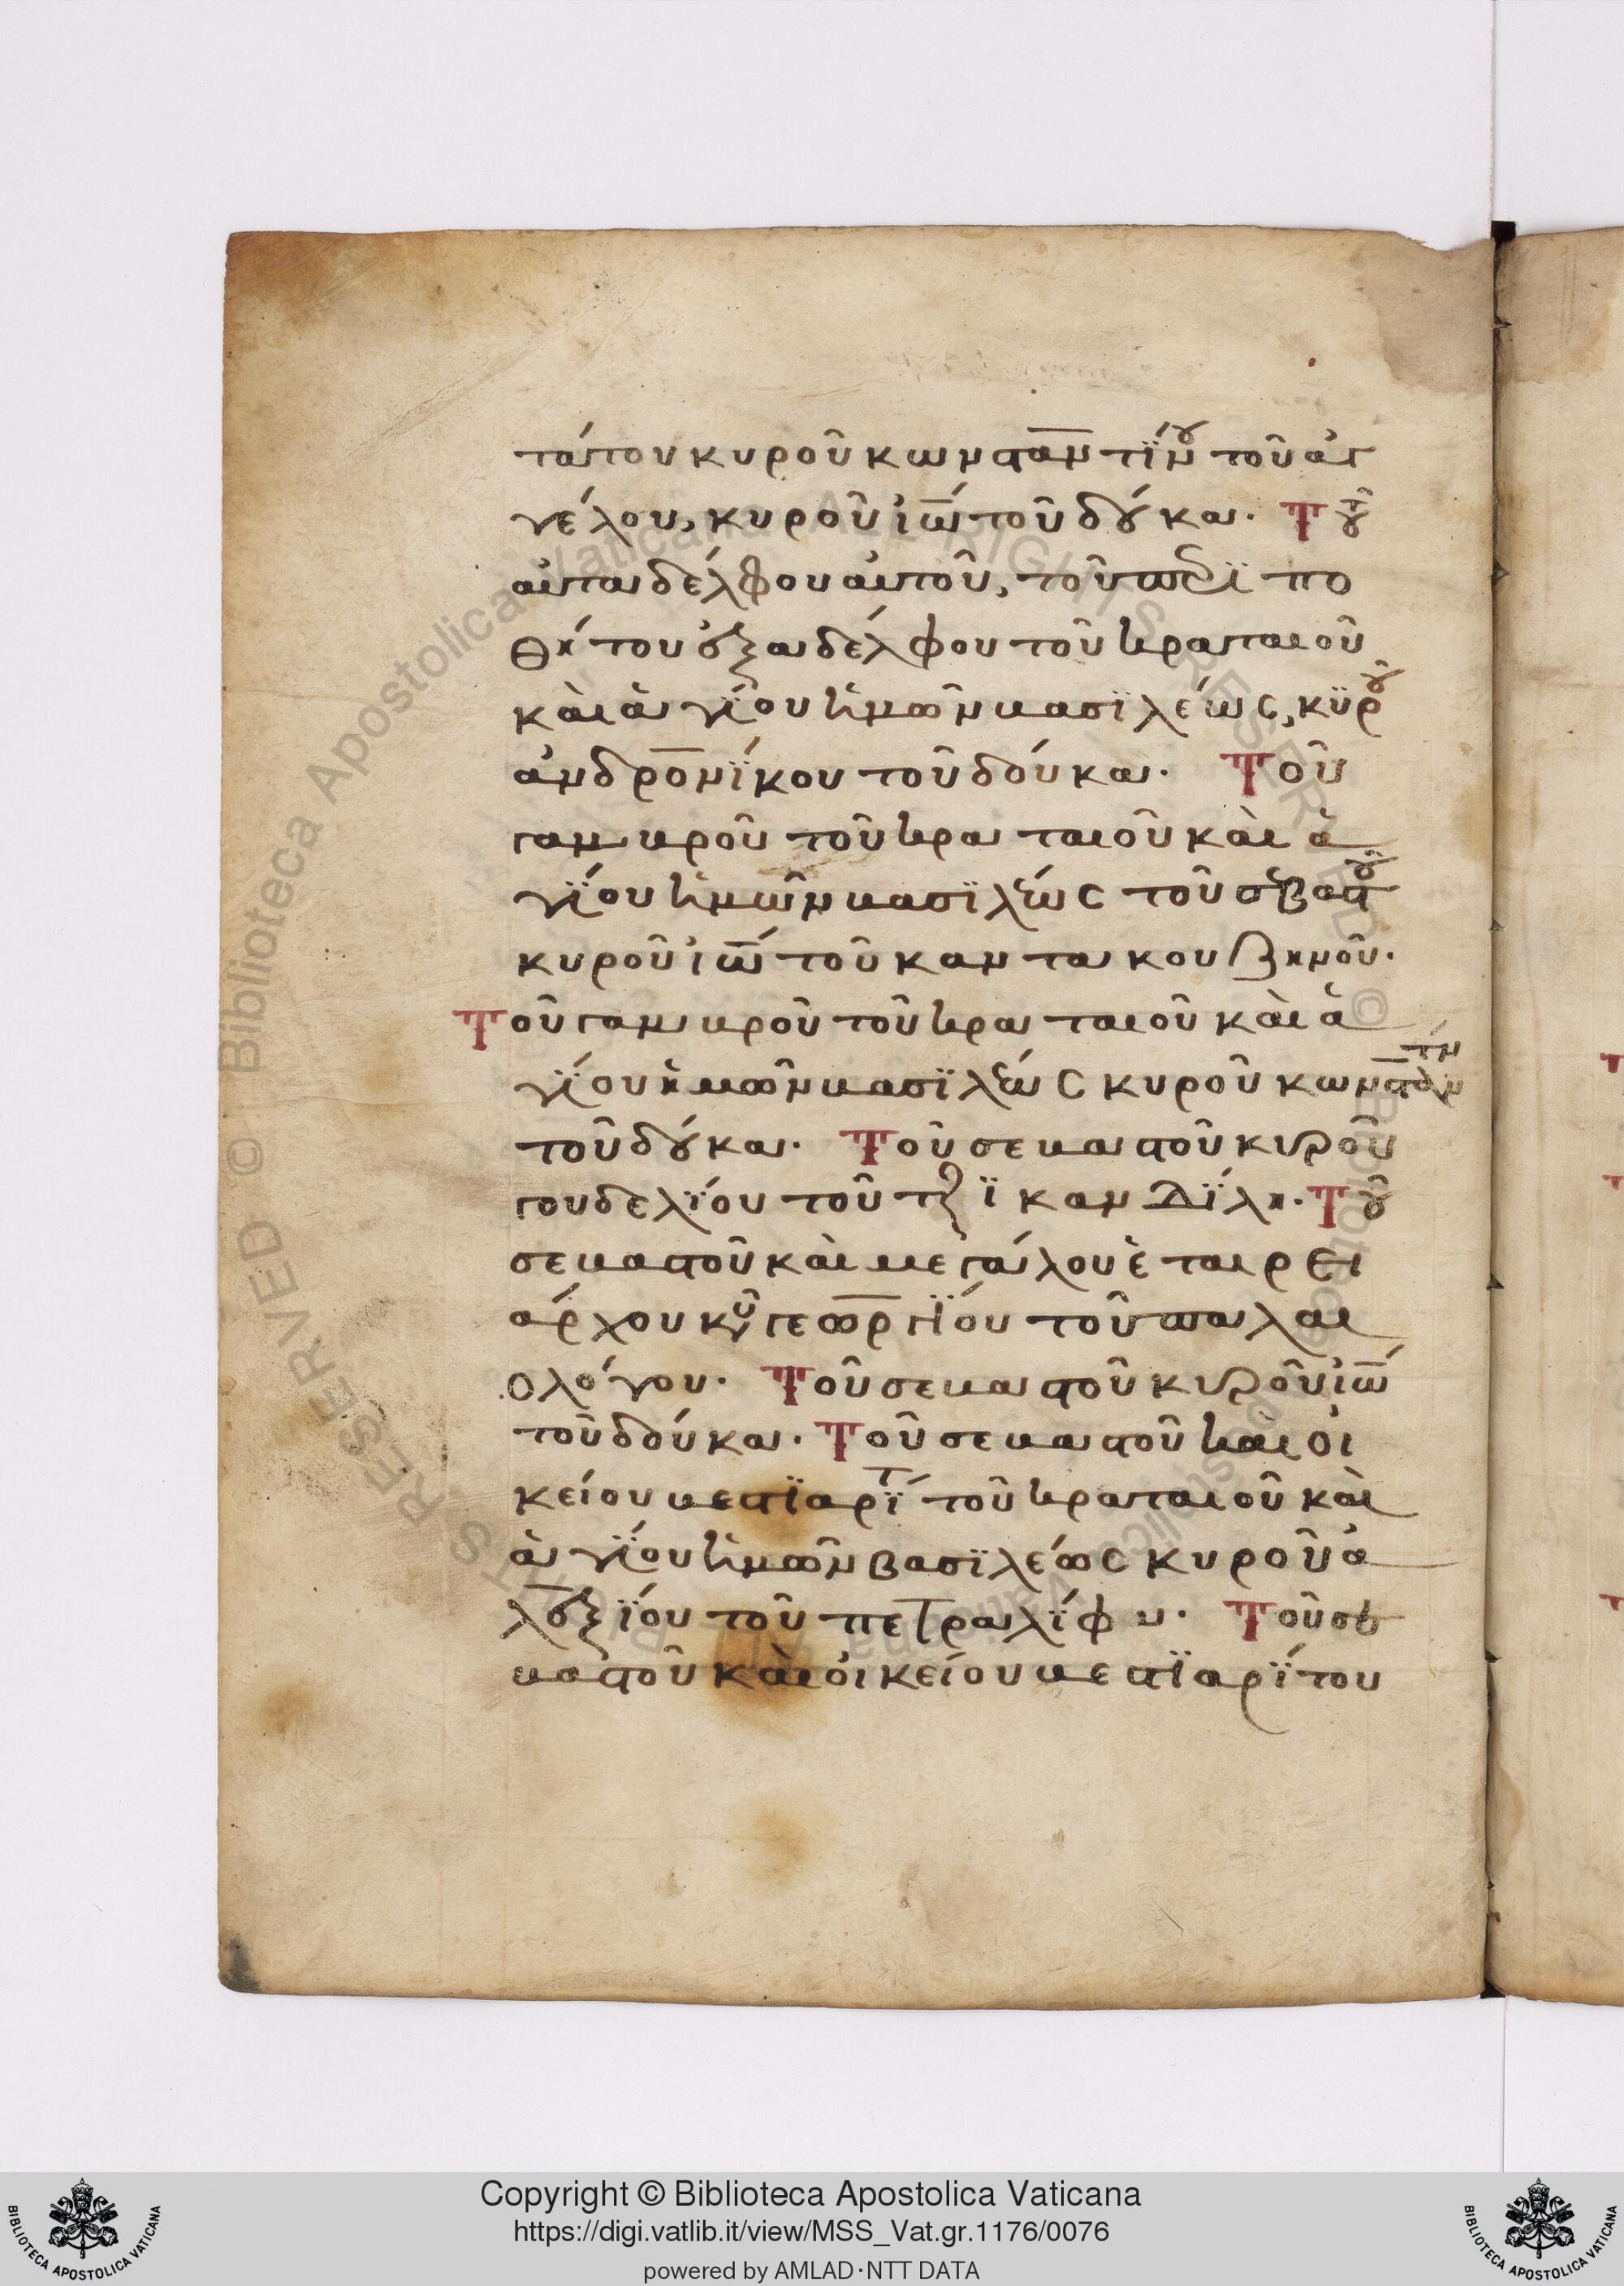 τάτου κυροῦ κωνσταντίνου τοῦ ἀγ
γέλου, κυροῦ ἰω τοῦ δούκα. Τοῦ
αὐταδέλφου αὐτοῦ, τοῦ περϊπο
θήτου ἐξαδέλφου τοῦ κραταιοῦ
καὶ ἁγΐου ἡμῶν βασϊλέως, κϋροῦ
ἀνδρονΐκου τοῦ δούκα. Τοῦ
γαμβροῦ τοῦ κραταιοῦ καὶ ἁ
γΐου ἡμῶν βασϊλέως τοῦ σεβαστοῦ
κυροῦ ἰω τοῦ καντακουζηνοῦ.
Τοῦ γαμβροῦ τοῦ κραταιοῦ καὶ ἁ
γΐου ἡμῶν βασϊλέως κυροῦ κωνσταντίν
τοῦ δούκα. Τοῦ σεβαστοῦ κυροῦ
γουδελΐου τοῦ τζϊκανδΐλη. Τοῦ
σεβαστοῦ καὶ μεγάλου ἑταιρει
άρχου κυροῦ γεωργΐου τοῦ παλαι
ολόγου. Τοῦ σεβαστοῦ κυροῦ ἰω
τοῦ δούκα. Τοῦ σεβαστοῦ καὶ οἰ
κείου βεστϊαρΐτ τοῦ κραταιοῦ καὶ
ἁγΐου ἡμῶν βασϊλέως κυροῦ ἀ
λεξΐου τοῦ πετραλΐφα. Τοῦ σε
βαστοῦ καὶ οἰκείου βεστϊαρΐτου
Copyright © Biblioteca Apostolica Vaticana
https://digi.vatlib.it/view/MSS_Vat.gr.1176/0076
powered by AMLAD·NTT DATA
BIBLIOTECA APOSTOLICA VATICANA
BIBLIOTECA APOSTOLICA VATICANA